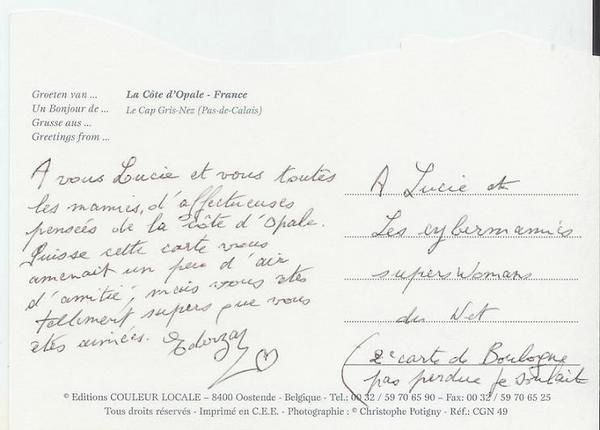 Groeten van ...
Un Bonjour de ...
Grusse aus ...
Greetings from ...
La Côte d'Opale - France
Le Cap Gris-Nez (Pas-de-Calais)
A vous Lucie et vous toutes
les mamies, d'affectueuses
pensées de la côte d'Opale.
Puisse cette carte vous
amenait un peu d'air
d'amitié, mais vous êtes
tellement supers que vous
etes aimées.
A Lucie et
Les cybermamies
superswomans
du Net
(2e carte de Boulogne
pas perdue je souhaite
© Editions COULEUR LOCALE – 8400 Oostende - Belgique - Tel.: 00 32 / 59 70 65 90 – Fax: 00 32 / 59 70 65 25
Tous droits réservés - Imprimé en C.E.E. - Photographie : © Christophe Potigny - Réf.: CGN 49